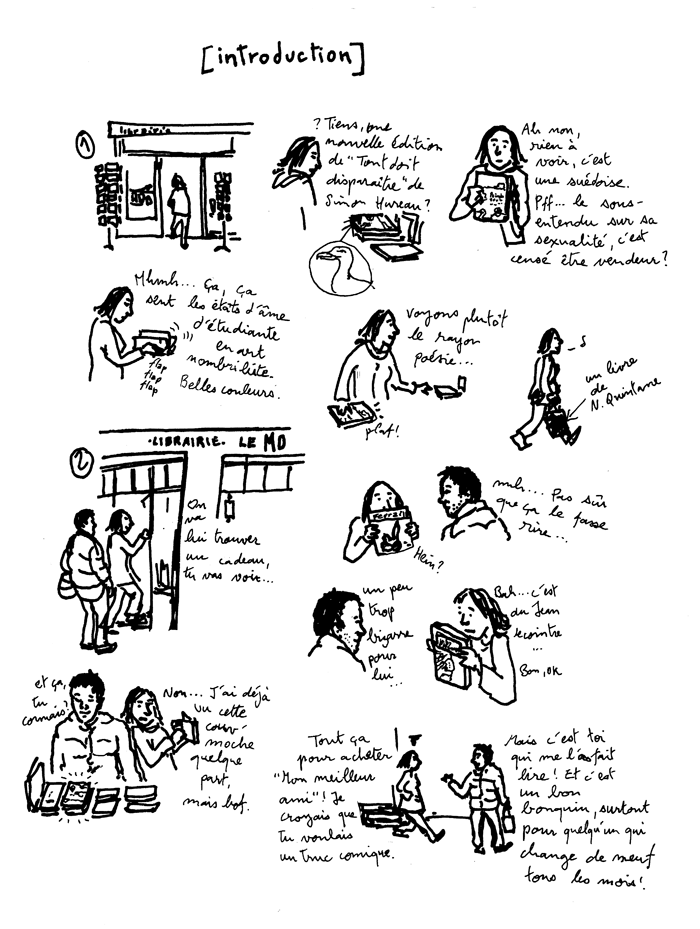 [introduction]
1
librairie
? Tiens, une
nouvelle édition
de "Tout doit
disparaître" de
Simon Hureau?
Ah non,
rien à
voir, c'est
une suédoise.
Pff... le sous-
entendu sur sa
sexualité, c'est
censé être vendeur?
Mhmh... Ça, ça
sent les états d'âme
d'étudiante
en art
nombriliste.
Belles couleurs.
flap
flap
flap
voyons plutôt
le rayon
poésie...
plaf!
un livre
de
N. Quintane
2
·LIBRAIRIE· LE MO
On
va
lui trouver
un cadeau,
tu vas voir...
Hein?
mmh... Pas sûr
que ça le fasse
rire...
un peu
trop
bizarre
pour
lui
...
Bah...c'est
du Jean
Lecointre
...
Bon, ok
et ça,
tu
connais?
Non... J'ai déjà
vu cette
couv'
moche
quelque
part,
mais bof.
Tout ça
pour acheter
"Mon meilleur
ami"! Je
croyais que
tu voulais
un truc comique.
Mais c'est toi
qui me l'as fait
lire! Et c'est
un bon
bouquin, surtout
pour quelqu'un qui
change de meuf
tous les mois!